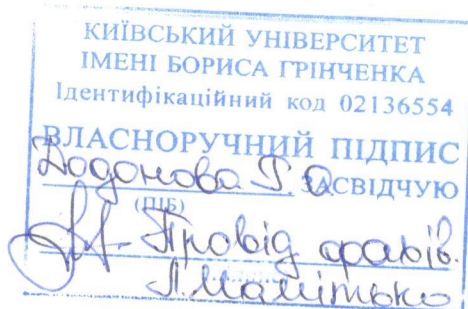 КИЇВСЬКИЙ УНІВЕРСИТЕТ
ІМЕНІ БОРИСА ГРІНЧЕНКА
Ідентифікаційний код 02136554
ВЛАСНОРУЧНИЙ ПІДПИС
Додонова
ЗАСВІДЧУЮ
(ПІБ)
Провід фахів.